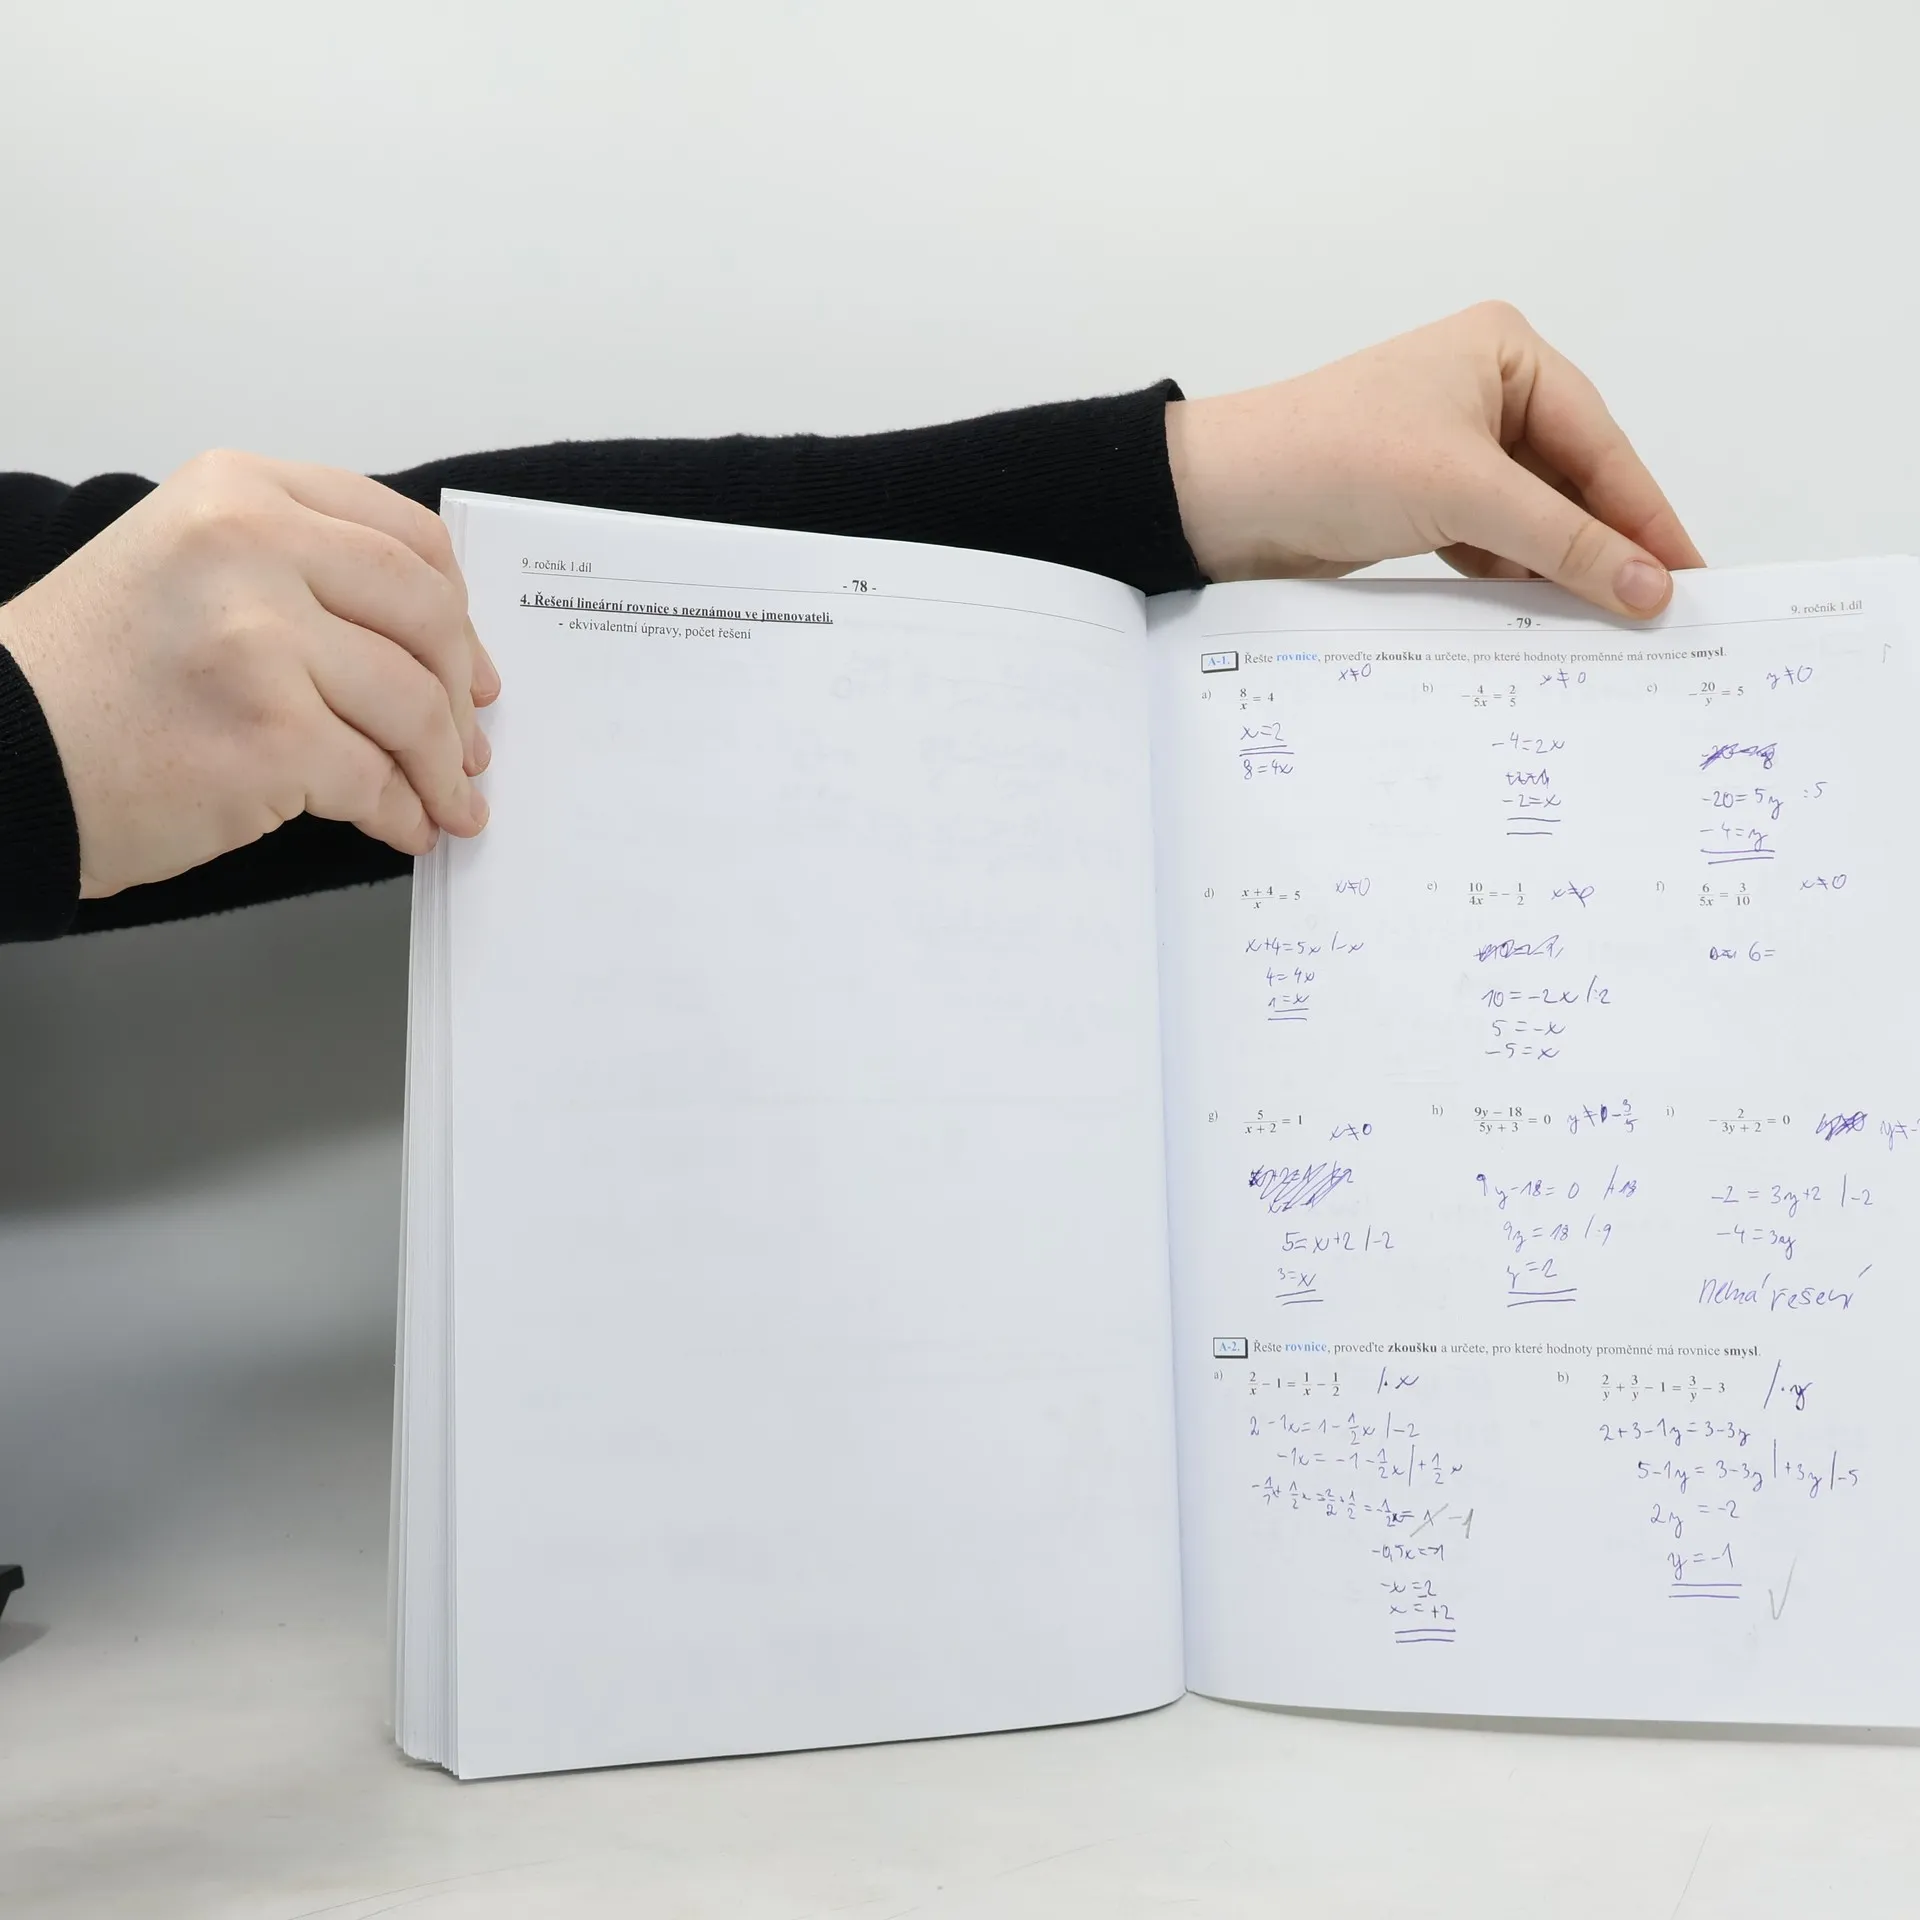 9. ročník 1.díl
- 78 -
4. Řešení lineární rovnice s neznámou ve jmenovateli.
- ekvivalentní úpravy, počet řešení
- 79 -
9. ročník 1.díl
A-1. Řešte rovnice, proveďte zkoušku a určete, pro které hodnoty proměnné má rovnice smysl.
a) 8/x = 4 x≠0
x=2
8=4x
b) -4/5x = 2/5 x≠0
-4=2x
-2=x
c) -20/y = 5 y≠0
-20=5y :5
-4=y
d) x+4/x = 5 x≠0
x+4=5x /-x
4=4x
1=x
e) 10/4x = -1/2 x≠0
10=-2x /:2
5=-x
-5=x
f) 6/5x = 3/10 x≠0
6=
g) 5/x+2 = 1 x≠0
5=x+2 /-2
3=x
h) 9y-18/5y+3 = 0 y≠-3/5
9y-18=0 /+18
9y=18 /:9
y=2
i) -2/3y+2 = 0 y≠-
-2=3y+2 /-2
-4=3y
nemá řešení
A-2. Řešte rovnice, proveďte zkoušku a určete, pro které hodnoty proměnné má rovnice smysl.
a) 2/x - 1 = 1/x - 1/2 /·x
2-1x=1-1/2x /-2
-1x=-1-1/2x /+1/2x
-1
-0,5x=-1
-x=2
x=+2
b) 2/y + 3/y - 1 = 3/y - 3 /·y
2+3-1y=3-3y
5-1y=3-3y /+3y /-5
2y=-2
y=-1